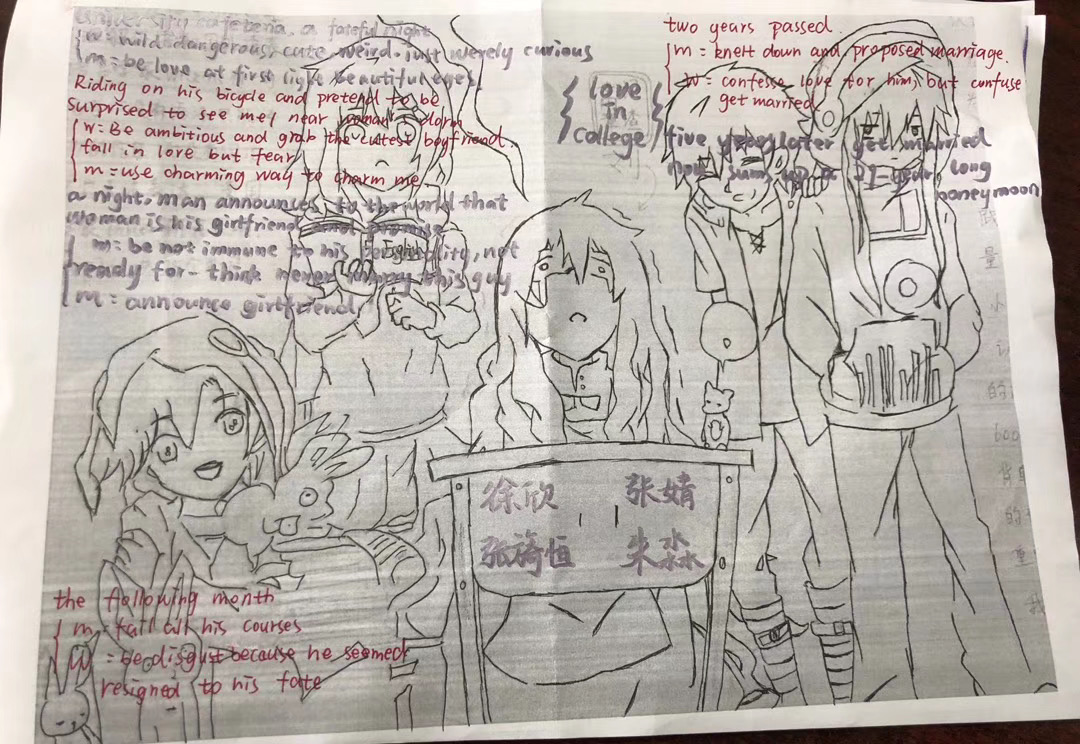 university cafeteria, a fateful night
w: wild dangerous, cute weird. just merely curious
m = be love at first light beautiful eyes
Riding on his bicycle and pretend to be
surprised to see me, near woman's dorm
w: Be ambitious and grab the cutest boyfriend.
fall in love but fear
m = use charming way to charm me
a night, man announces to the world that
woman is his girlfriend and promise
m: be not immune to his personality, not
ready for - think never marry this guy
m = announce girlfriend
English
love
in
college
two years passed.
m = knelt down and proposed marriage.
w = confesse love for him, but confuse
get married
five years later get married
now sum up a 21-year long
honeymoon
量
小
的
的
重
我
徐欣 张婧
张旖恒 朱淼
the following month
m = fall all his courses
w = be disgust because he seemed
resigned to his fate